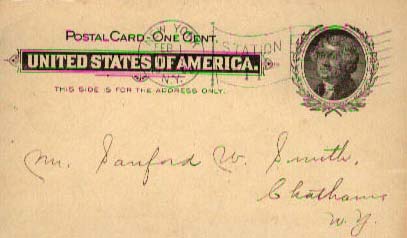 POSTAL CARD-ONE CENT.
NEW YORK
FEB
N.Y.
STATION
UNITED STATES OF AMERICA.
THIS SIDE IS FOR THE ADDRESS ONLY.
Mr. Sanford W. Smith,
Chatham
N.Y.